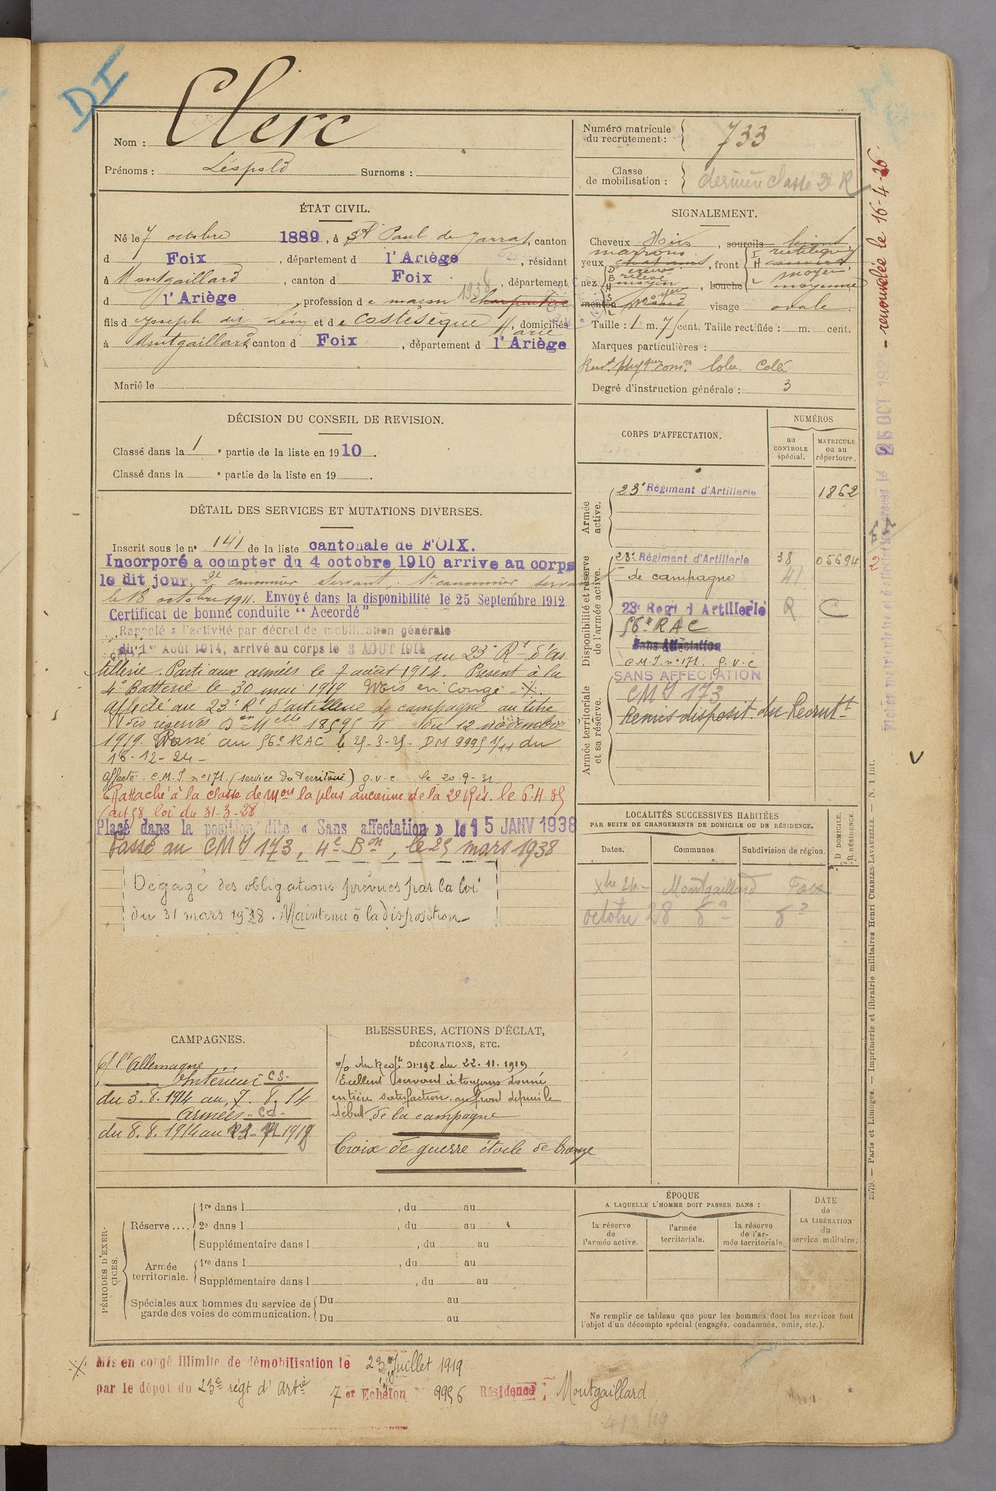 DI
Nom : Clerc
Prénoms : Léopold Surnoms :
ÉTAT CIVIL.
Né le 7 octobre 1889, à St Paul de Jarrat, canton
d Foix, département d l'Ariège, résidant
à Montgaillard, canton d Foix, département
d l'Ariège, profession de maçon 1938 charpentier
fils d Joseph et de Castesèque Marie, domiciliés
à Montgaillard canton d Foix, département d l'Ariège
Marié le
DÉCISION DU CONSEIL DE REVISION.
Classé dans la 1e partie de la liste en 1910.
Classé dans la e partie de la liste en 19 .
DÉTAIL DES SERVICES ET MUTATIONS DIVERSES.
Inscrit sous le n° 141 de la liste cantonale de FOIX.
Incorporé a compter du 4 octobre 1910 arrive au corps
le dit jour, 2e canonnier servant. 1er canonnier servant
le 18 octobre 1911. Envoyé dans la disponibilité le 25 Septembre 1912
Certificat de bonne conduite "Accordé"
Rappelé à l'activité par décret de mobilisation générale
du 1er Août 1914, arrivé au corps le 3 AOUT 1914 au 23e Rt d'Ar
tillerie. Parti aux armées le 7 août 1914. Présent à la
4e Batterie le 30 mai 1919 Mois en Congé X.
Affecté au 23e Rt d'artillerie de campagne au titre
du 12 novembre
1919. Passé au 56e RAC le 25-3-25. DM 9995 1/11 du
18-12-24-
affecté. C.M.I n°171. (service du Territoire) g.v.c le 20.9-31
Rattaché à la classe de Mon la plus ancienne de la 2e Rés. le 6.4.35
(art 58 loi du 31-3-28
Placé dans la position dite « Sans affectation » le 15 JANV 1938
Passé au CMI 173, 4e Bon, le 25 mars 1938
Dégagé des obligations prévues par la loi
du 31 mars 1928. Maintenu à la disposition
CAMPAGNES.
Ct l'Allemagne
Intérieur C.S.
du 3.8.1914 au 7.8.14
Armées C.d.
du 8.8.1914 au
BLESSURES, ACTIONS D'ÉCLAT,
DÉCORATIONS, ETC.
o/o du Regt 31.192 du 22.11.1919
Excellent servant a toujours donné
entière satisfaction au front depuis le
début de la campagne
Croix de guerre étoile de bronze
PÉRIODES D'EXERCICES.
Réserve....
1re dans l , du au
2e dans l , du au
Supplémentaire dans l , du au
Armée territoriale.
1re dans l , du au
Supplémentaire dans l , du au
Spéciales aux hommes du service de garde des voies de communication.
Du au
Du au
X Mis en congé illimité de démobilisation le 23 Juillet 1919
par le dépôt du 23e régt d'Artie 7er Echelon n° 9956 Résidence : Montgaillard
Numéro matricule du recrutement : 733
Classe de mobilisation : dernière classe 2e R
SIGNALEMENT.
Cheveux Noirs, sourcils
yeux marrons, front
nez , bouche moyenne
menton visage ovale
Taille : 1 m. 71 cent. Taille rectifiée : m. cent.
Marques particulières :
Degré d'instruction générale : 3
CORPS D'AFFECTATION.
NUMÉROS
au CONTROLE spécial.
MATRICULE ou au répertoire.
Armée active.
23e Régiment d'Artillerie 1862
Disponibilité et réserve de l'armée active.
23e Régiment d'Artillerie 38 05694
de campagne 41
23e Régt d'Artillerie R C
56e RAC
Sans Affectation
C.M.I. n°171. g.v.c
Armée territoriale et sa réserve.
SANS AFFECTATION
CMI 173
Remis disposit. du Recrutt
LOCALITÉS SUCCESSIVES HABITÉES
PAR SUITE DE CHANGEMENTS DE DOMICILE OU DE RÉSIDENCE.
Dates. Communes. Subdivision de région. D. DOMICILE. R. RÉSIDENCE.
Xbre 24 Montgaillard Foix
octobre 28 do do
ÉPOQUE
A LAQUELLE L'HOMME DOIT PASSER DANS :
la réserve de l'armée active.
l'armée territoriale.
la réserve de l'armée territoriale
DATE de LA LIBÉRATION du service militaire.
Ne remplir ce tableau que pour les hommes dont les services font
l'objet d'un décompte spécial (engagés, condamnés, omis, etc.).
renouvelée le 16-4-36
2
V
Paris et Limoges. — Imprimerie et librairie militaires Henri CHARLES-LAVAUZELLE. — N. 1 int.